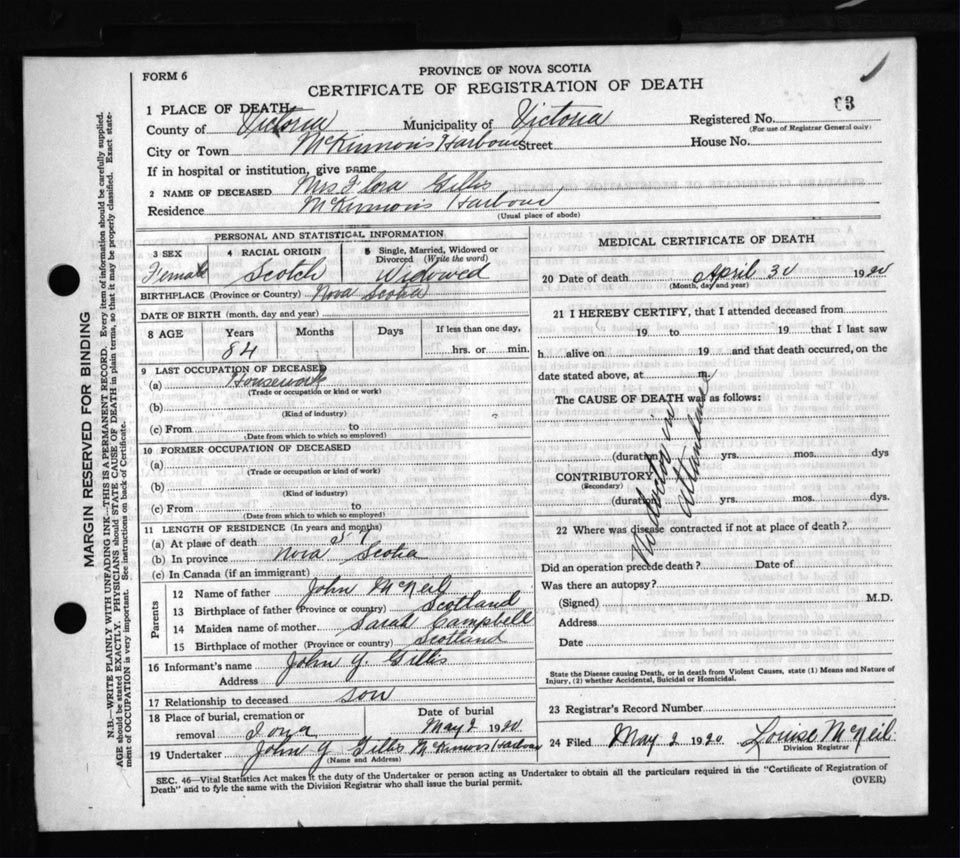 FORM 6
PROVINCE OF NOVA SCOTIA
CERTIFICATE OF REGISTRATION OF DEATH
63
1 PLACE OF DEATH
County of Victoria Municipality of Victoria Registered No.
(For use of Registrar General only)
City or Town McKinnon's Harbour Street House No.
If in hospital or institution, give name
2 NAME OF DECEASED Mrs Flora Gillis
Residence McKinnon's Harbour
(Usual place of abode)
PERSONAL AND STATISTICAL INFORMATION
3 SEX Female
4 RACIAL ORIGIN Scotch
5 Single, Married, Widowed or Divorced (Write the word) Widowed
BIRTHPLACE (Province or Country) Nova Scotia
DATE OF BIRTH (month, day and year)
8 AGE Years Months Days If less than one day,
84 hrs. or min.
9 LAST OCCUPATION OF DECEASED
(a) Housework
(Trade or occupation or kind of work)
(b)
(Kind of industry)
(c) From to
(Date from which to which so employed)
10 FORMER OCCUPATION OF DECEASED
(a)
(Trade or occupation or kind of work)
(b)
(Kind of industry)
(c) From to
(Date from which to which so employed)
11 LENGTH OF RESIDENCE (In years and months)
(a) At place of death
(b) In province Nova Scotia
(c) In Canada (if an immigrant)
Parents
12 Name of father John McNeil
13 Birthplace of father (Province or country) Scotland
14 Maiden name of mother Sarah Campbell
15 Birthplace of mother (Province or country) Scotland
16 Informant's name John Y. Gillis
Address
17 Relationship to deceased son
18 Place of burial, cremation or removal Iona
Date of burial May 2 1920
19 Undertaker John Y Gillis McKinnon's Harbour
(Name and Address)
MEDICAL CERTIFICATE OF DEATH
20 Date of death April 30 1920
(Month, day and year)
21 I HEREBY CERTIFY, that I attended deceased from
19 to 19 that I last saw
h alive on 19 and that death occurred, on the
date stated above, at m.
The CAUSE OF DEATH was as follows:
No doctor in
attendance
(duration) yrs. mos. dys
CONTRIBUTORY
(Secondary)
(duration) yrs. mos. dys.
22 Where was disease contracted if not at place of death?
Did an operation precede death? Date of
Was there an autopsy?
(Signed) M.D.
Address
Date
State the Disease causing Death, or in death from Violent Causes, state (1) Means and Nature of
Injury, (2) whether Accidental, Suicidal or Homicidal.
23 Registrar's Record Number
24 Filed May 2 1920 Louise McNeil
Division Registrar
SEC. 46—Vital Statistics Act makes it the duty of the Undertaker or person acting as Undertaker to obtain all the particulars required in the "Certificate of Registration of
Death" and to fyle the same with the Division Registrar who shall issue the burial permit.
(OVER)
MARGIN RESERVED FOR BINDING
N.B.—WRITE PLAINLY WITH UNFADING INK—THIS IS A PERMANENT RECORD. Every item of information should be carefully supplied.
AGE should be stated EXACTLY. PHYSICIANS should STATE CAUSE OF DEATH in plain terms, so that it may be properly classified. Exact state-
ment of OCCUPATION is very important. See instructions on back of Certificate.